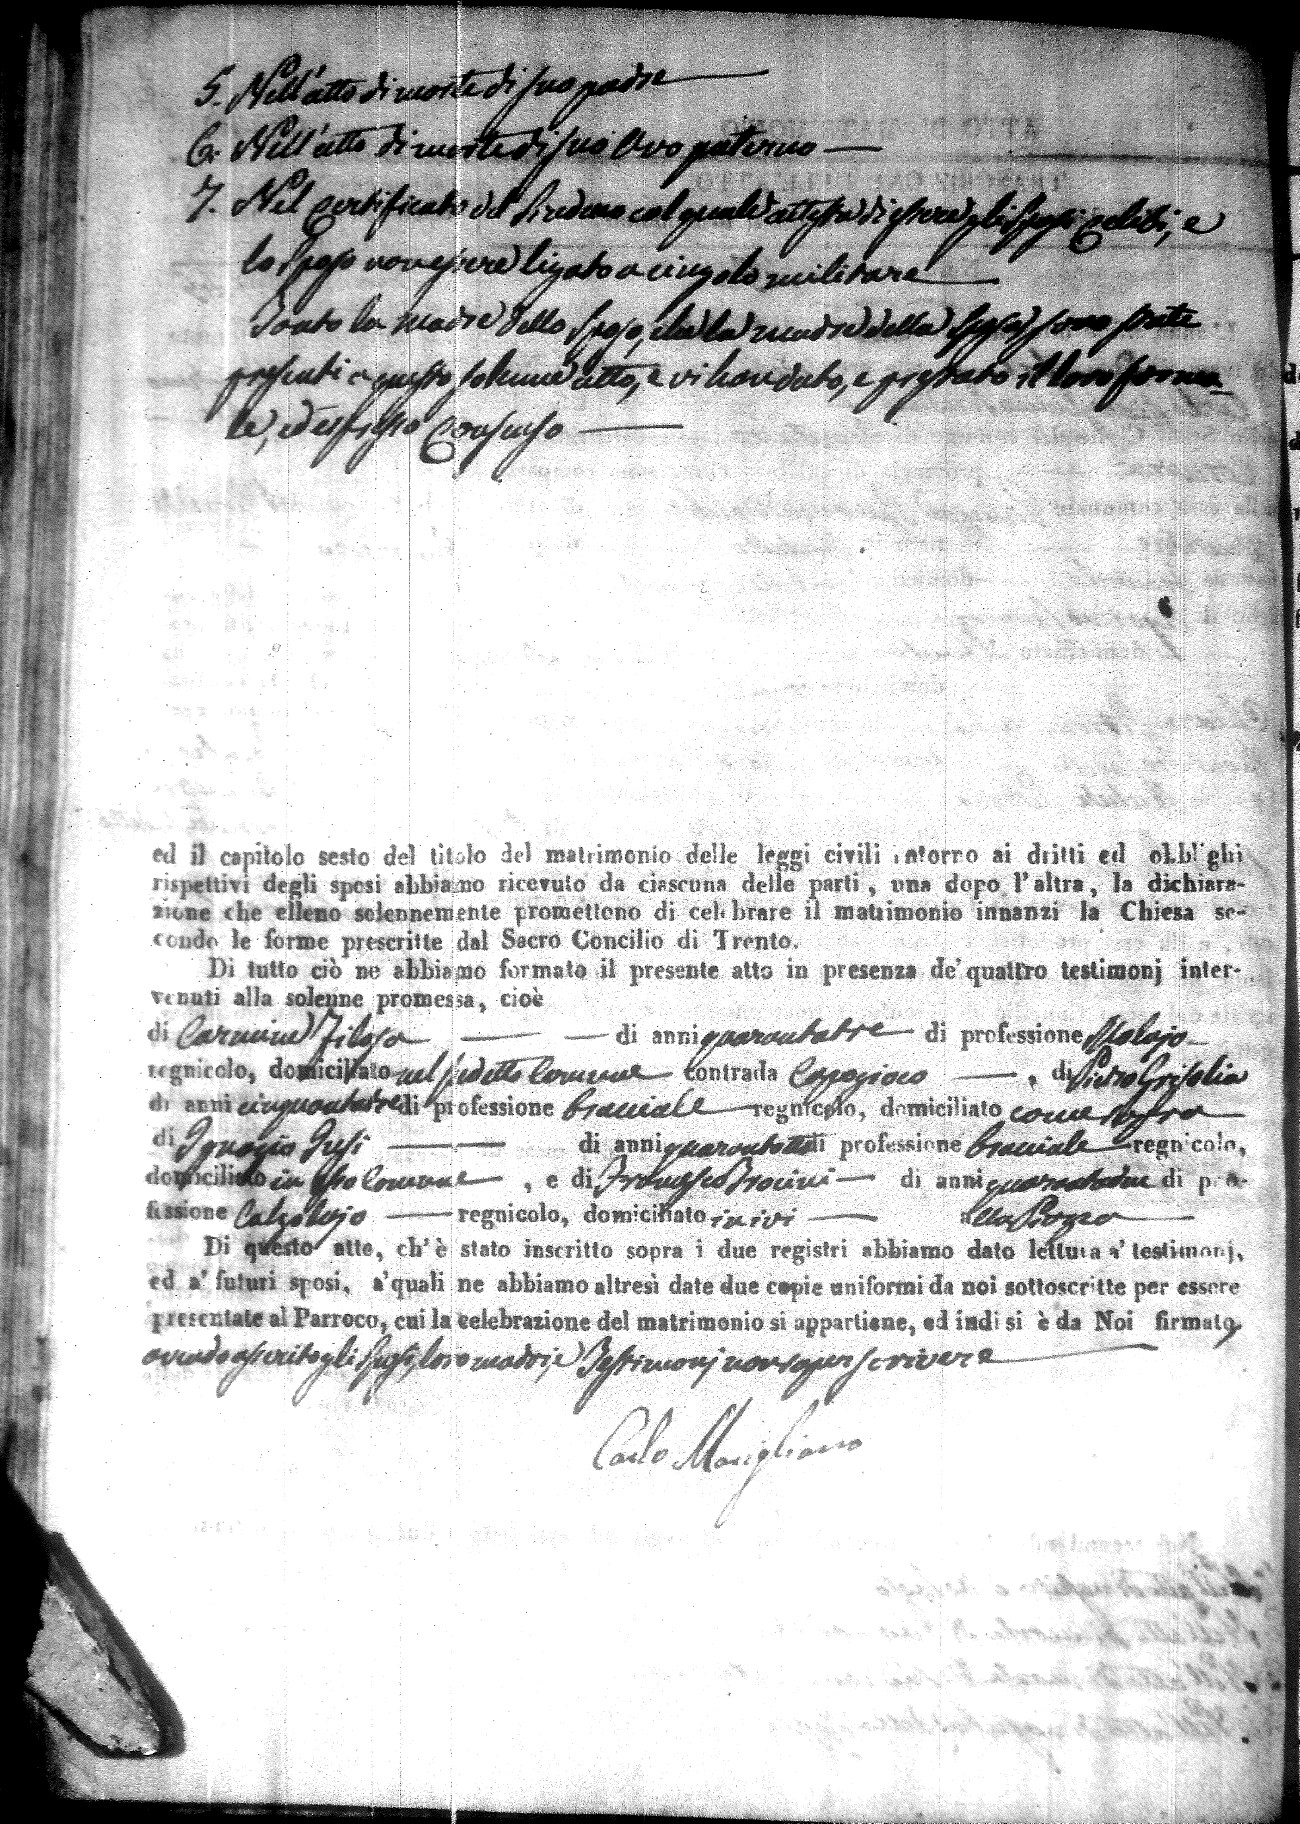 5. Nell'atto di morte di suo padre
6. Nell'atto di morte di suo Avo paterno
7. Nel Certificato del Sindaco col quale attesta di essere gli sposi celibi, e
lo sposo non essere ligato a cingolo militare
Tanto la madre dello sposo, che la madre della sposa sono state
presenti a questo solenne atto, e vi han dato, e prestato il loro forma-
le, ed espresso Consenso
ed il capitolo sesto del titolo del matrimonio delle leggi civili intorno ai dritti ed obblighi
rispettivi degli sposi abbiamo ricevuto da ciascuna delle parti, una dopo l'altra, la dichiara-
zione che elleno solennemente promettono di celebrare il matrimonio innanzi la Chiesa se-
condo le forme prescritte dal Sacro Concilio di Trento.
Di tutto ciò ne abbiamo formato il presente atto in presenza de' quattro testimonj inter-
venuti alla solenne promessa, cioè
di Carmine Filoso di anni quarantatre di professione
regnicolo, domiciliato nel sudetto Comune contrada , di Pietro Grisolia
di anni cinquantatre di professione bracciale regnicolo, domiciliato come sopra
di Ignazio di anni di professione bracciale regnicolo,
domiciliato in esso Comune , e di Francesco di anni di pro-
fissione Calzolajo regnicolo, domiciliato in ivi alla
Di questo atto, ch'è stato inscritto sopra i due registri abbiamo dato lettura a' testimonj,
ed a' futuri sposi, a' quali ne abbiamo altresì date due copie uniformi da noi sottoscritte per essere
presentate al Parroco, cui la celebrazione del matrimonio si appartiene, ed indi si è da Noi firmato,
avendo asserito gli sposi, loro madri, e Testimonj non saper scrivere
Carlo Marigliano